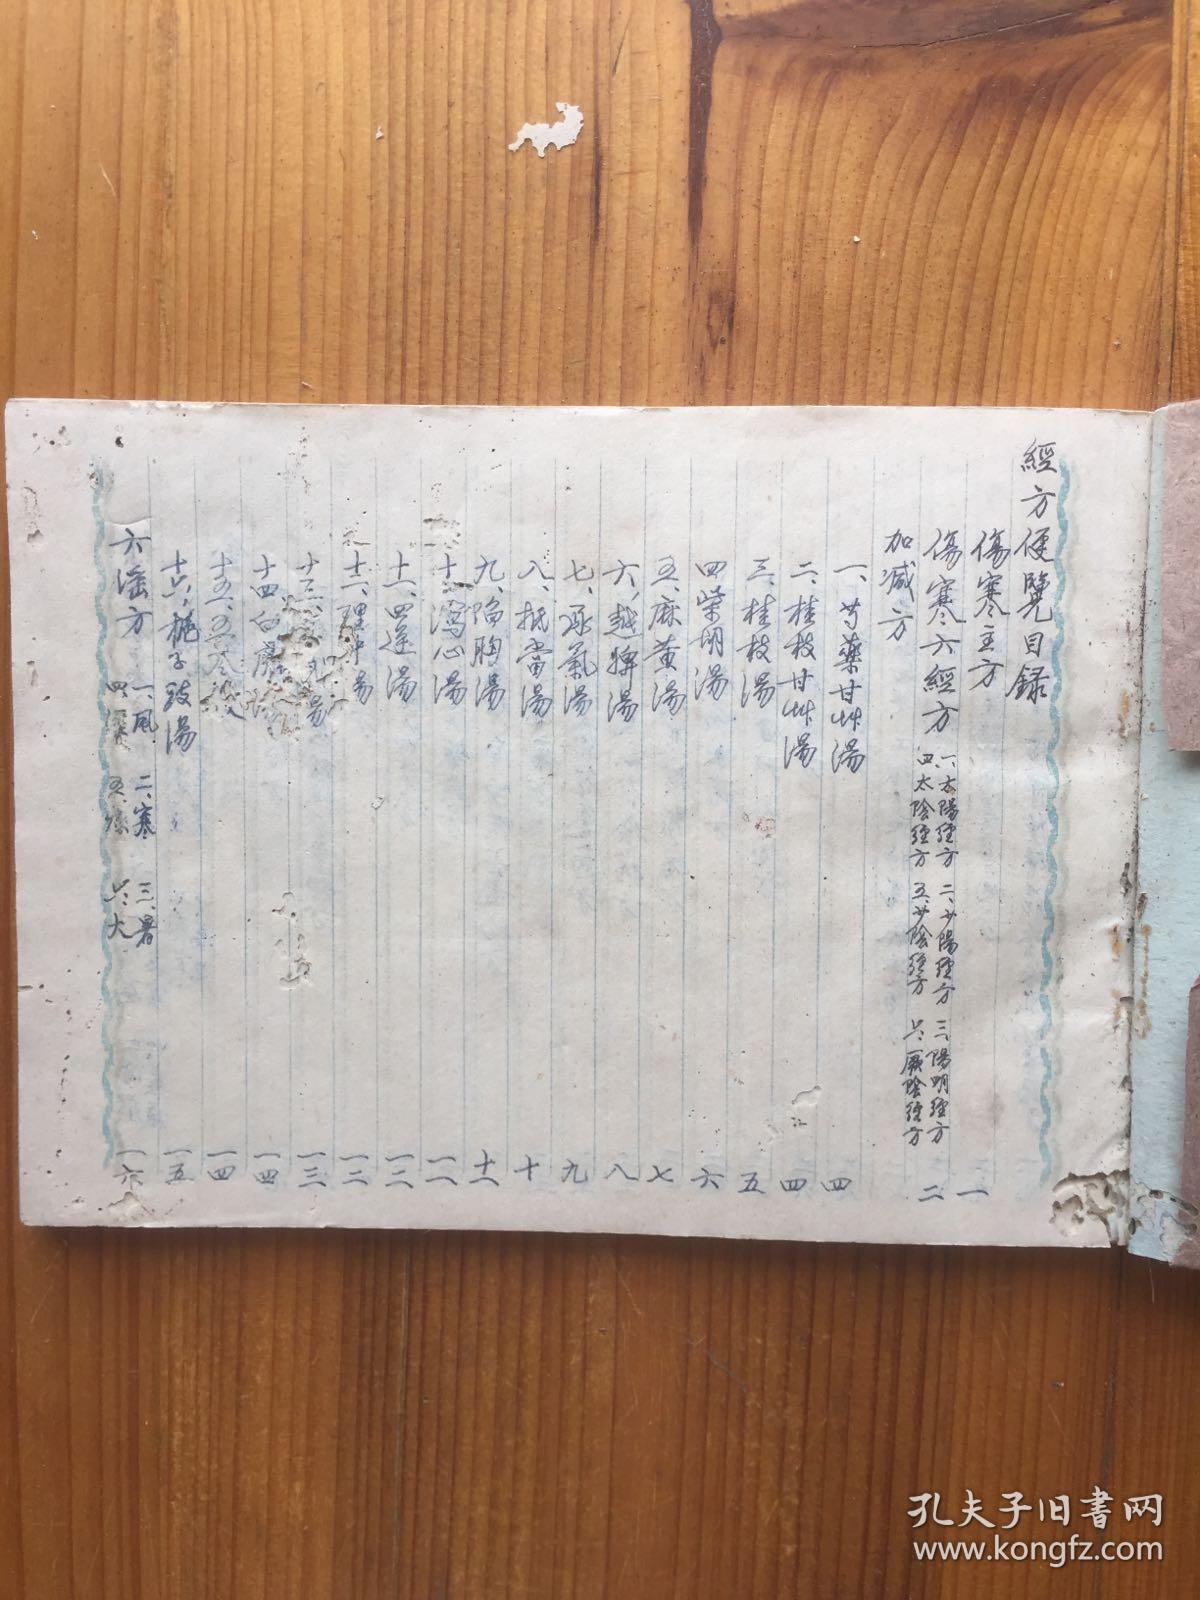 經方便覽目録
傷寒主方 一
傷寒六經方 一、太陽經方 二、少陽經方 三、陽明經方 四太陰經方 五、少陰經方 六、厥陰經方 二
加减方
一、芍藥甘艸湯 四
二、桂枝甘艸湯 四
三、桂枝湯 五
四柴胡湯 六
五、麻黄湯 七
六、越婢湯 八
七、承氣湯 九
八、抵當湯 十
九、陷胸湯 十一
十、瀉心湯 一二
十一、四逆湯 一二
十二、理中湯 一三
十三、湯 一三
十四白虎 一四
十五、五苓散 一四
十六、栀子豉湯 一五
六淫方 一、風 二、寒 三、暑 四、濕 五、燥 六、火 一六
孔夫子旧书网
www.kongfz.com